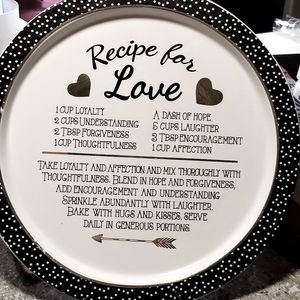 Recipe for
Love
1 CUP LOYALTY
2 CUPS UNDERSTANDING
2 TBSP FORGIVENESS
1 CUP THOUGHTFULNESS
A DASH OF HOPE
5 CUPS LAUGHTER
3 TBSP ENCOURAGEMENT
1 CUP AFFECTION
TAKE LOYALTY AND AFFECTION AND MIX THOROUGHLY WITH
THOUGHTFULNESS. BLEND IN HOPE AND FORGIVENESS,
ADD ENCOURAGEMENT AND UNDERSTANDING
SPRINKLE ABUNDANTLY WITH LAUGHTER.
BAKE WITH HUGS AND KISSES. SERVE
DAILY IN GENEROUS PORTIONS.